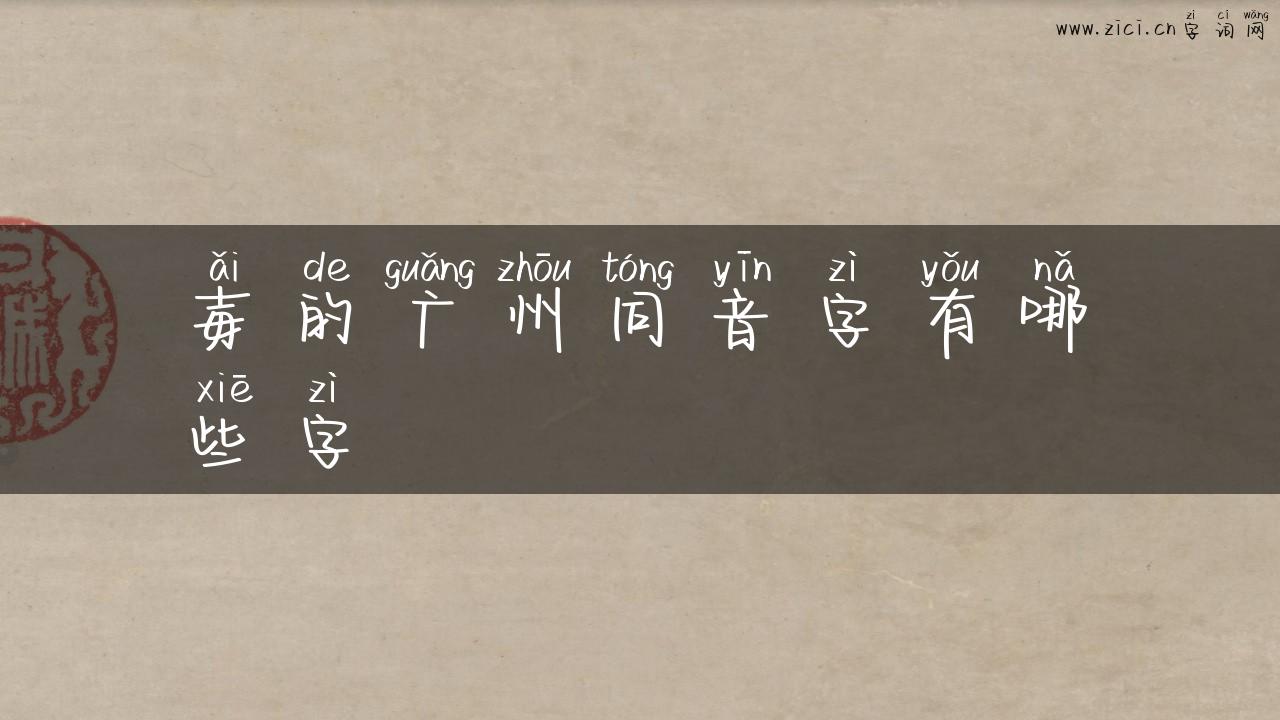 zì cí wǎng
www.zici.cn字词网
ǎi de guǎng zhōu tóng yīn zì yǒu nǎ
毐的广州同音字有哪
xiē zì
些字